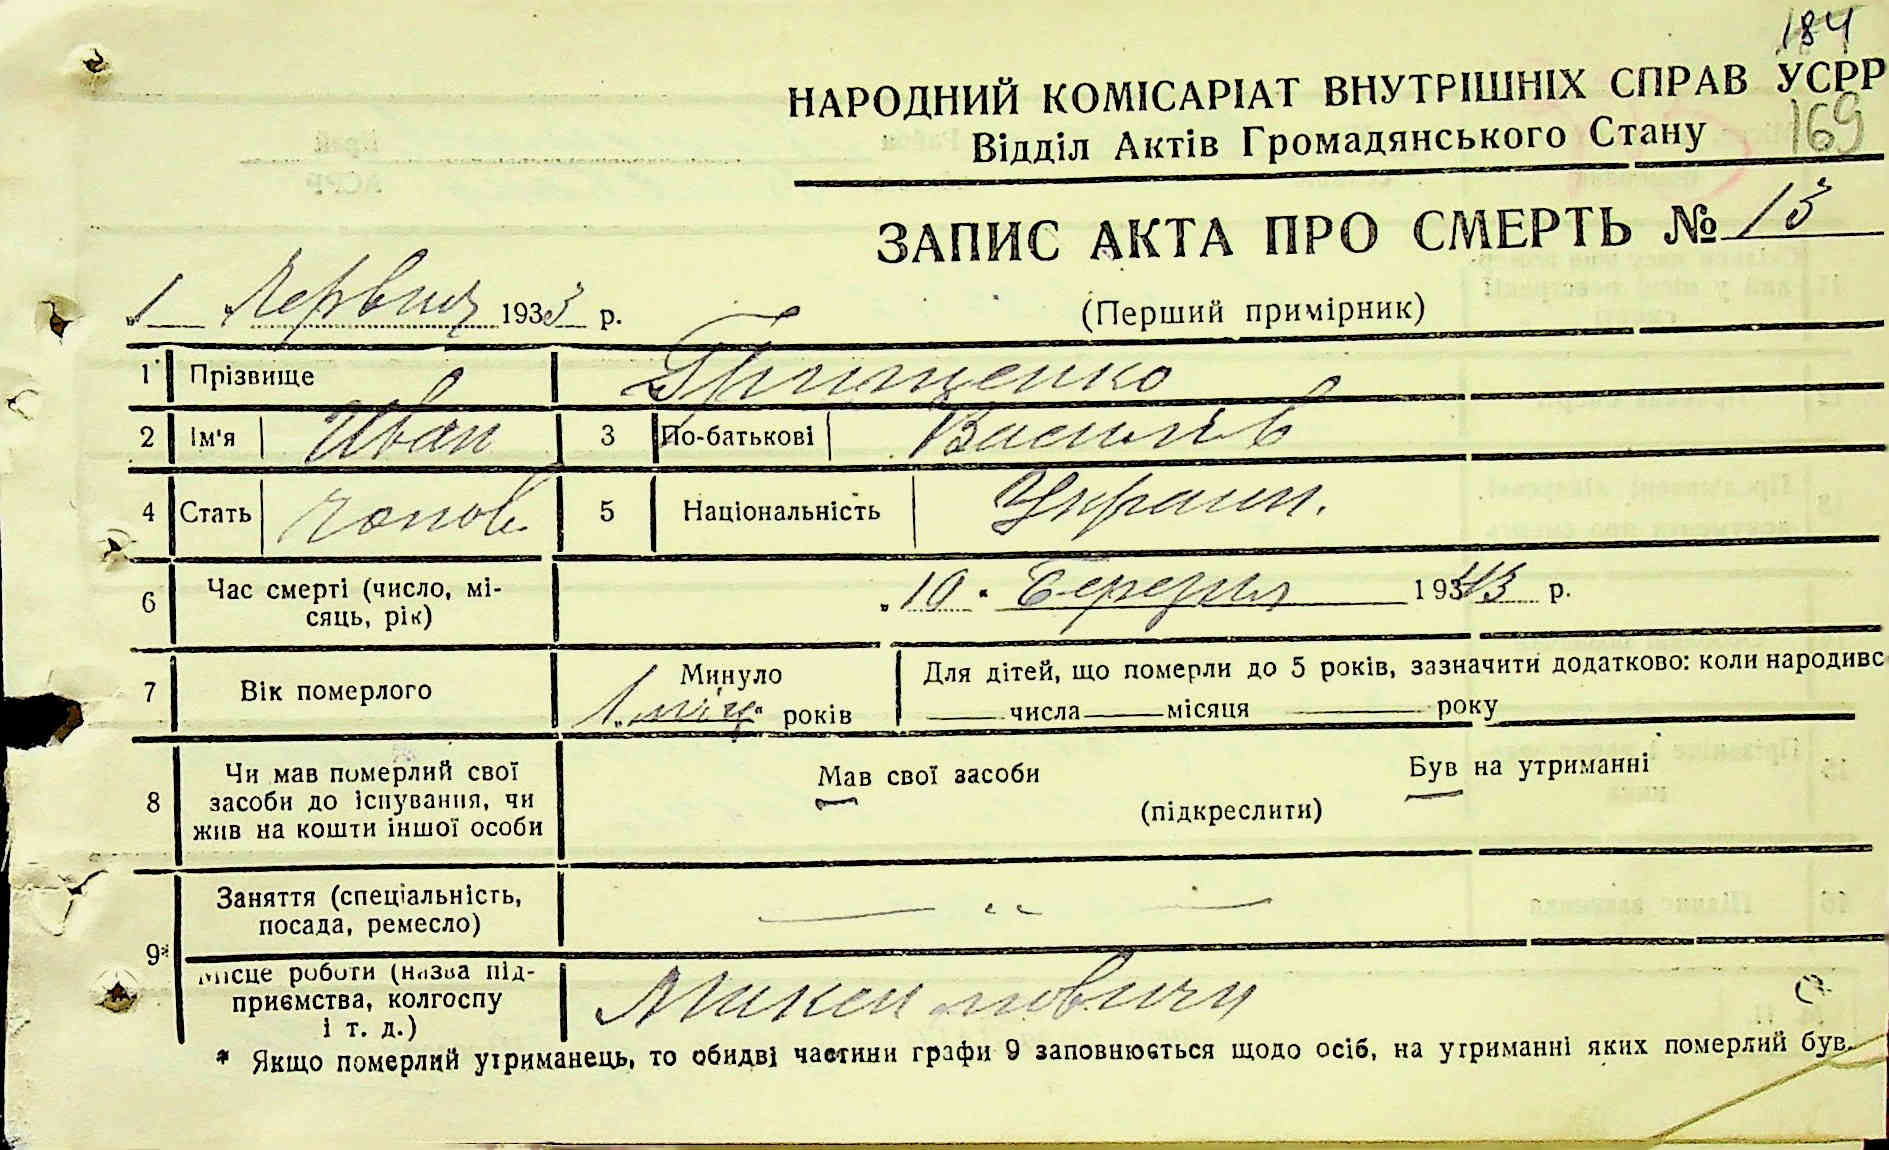 184
НАРОДНИЙ КОМІСАРІАТ ВНУТРІШНІХ СПРАВ УСРР
169
Відділ Актів Громадянського Стану
ЗАПИС АКТА ПРО СМЕРТЬ № 13
„1 Червня 1933 р.
(Перший примірник)
1 Прізвище Грищенко
2 Ім'я Иван 3 По-батькові Василів
4 Стать чолов. 5 Національність Украин.
6 Час смерті (число, мі-
сяць, рік) „10" Березня 193 р.
7 Вік померлого 1 міц. Минуло років
Для дітей, що померли до 5 років, зазначити додатково: коли народивс
числа місяця року
8 Чи мав померлий свої
засоби до існування, чи
жив на кошти іншої особи
Мав свої засоби Був на утриманні
(підкреслити)
9* Заняття (спеціальність,
посада, ремесло)
Місце роботи (назва під-
приємства, колгоспу
і т. д.)
* Якщо померлий утриманець, то обидві частини графи 9 заповнюється щодо осіб, на утриманні яких померлий був.